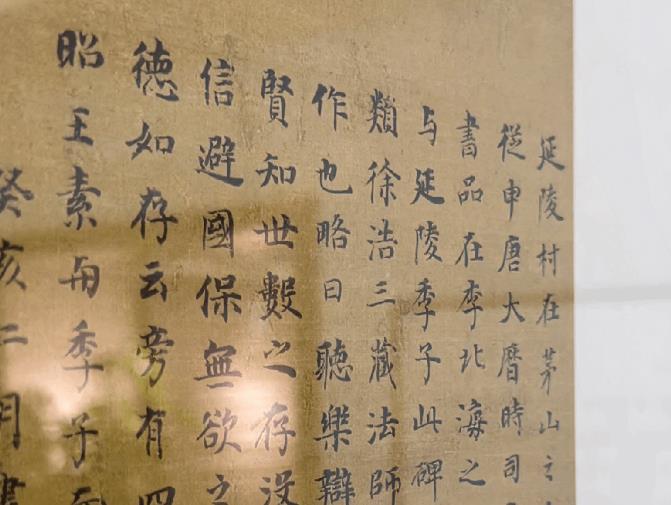 延陵村在茅山之
從申唐大曆時司
書品在李北海之
与延陵季子此碑
類徐浩三藏法師
作也略曰聽樂辯
賢知世數之存没
信避國保無欲之
德如存云旁有四
昭王素与季子
癸亥二月書